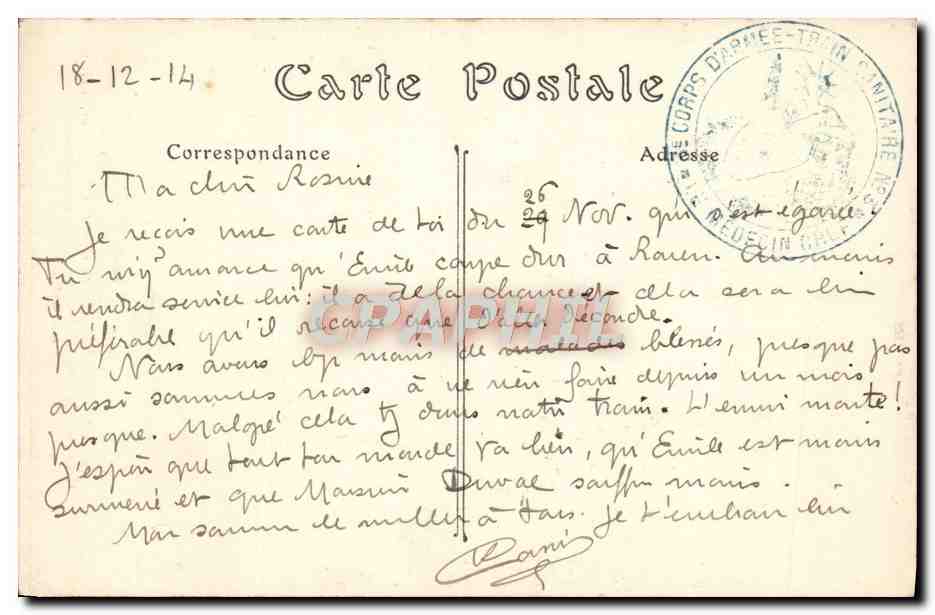 18-12-14
Carte Postale
Correspondance
Adresse
CORPS D'ARMÉE-TRAIN SANITAIRE N°
MÉDECIN CHEF
Ma chère Rosine
Je reçois une carte de toi du 29 26 Nov. qui s'est égarée.
Tu m'y annonce qu'Emile coupe dur à Rouen. Au moins
il rendra service lui: il a de la chance et cela sera bien
préférable qu'il recouse que d'aller découdre.
Nous avons bp moins de malades blessés, presque pas
aussi sommes nous à ne rien faire depuis un mois
presque. Malgré cela tj dans notre train. L'ennui monte!
J'espère que tout ton monde va bien, qu'Emile est moins
surmené et que Monsieur Duval souffre moins.
Mon souvenir le meilleur à tous. Je t'embrasse bien
CPAPHIL